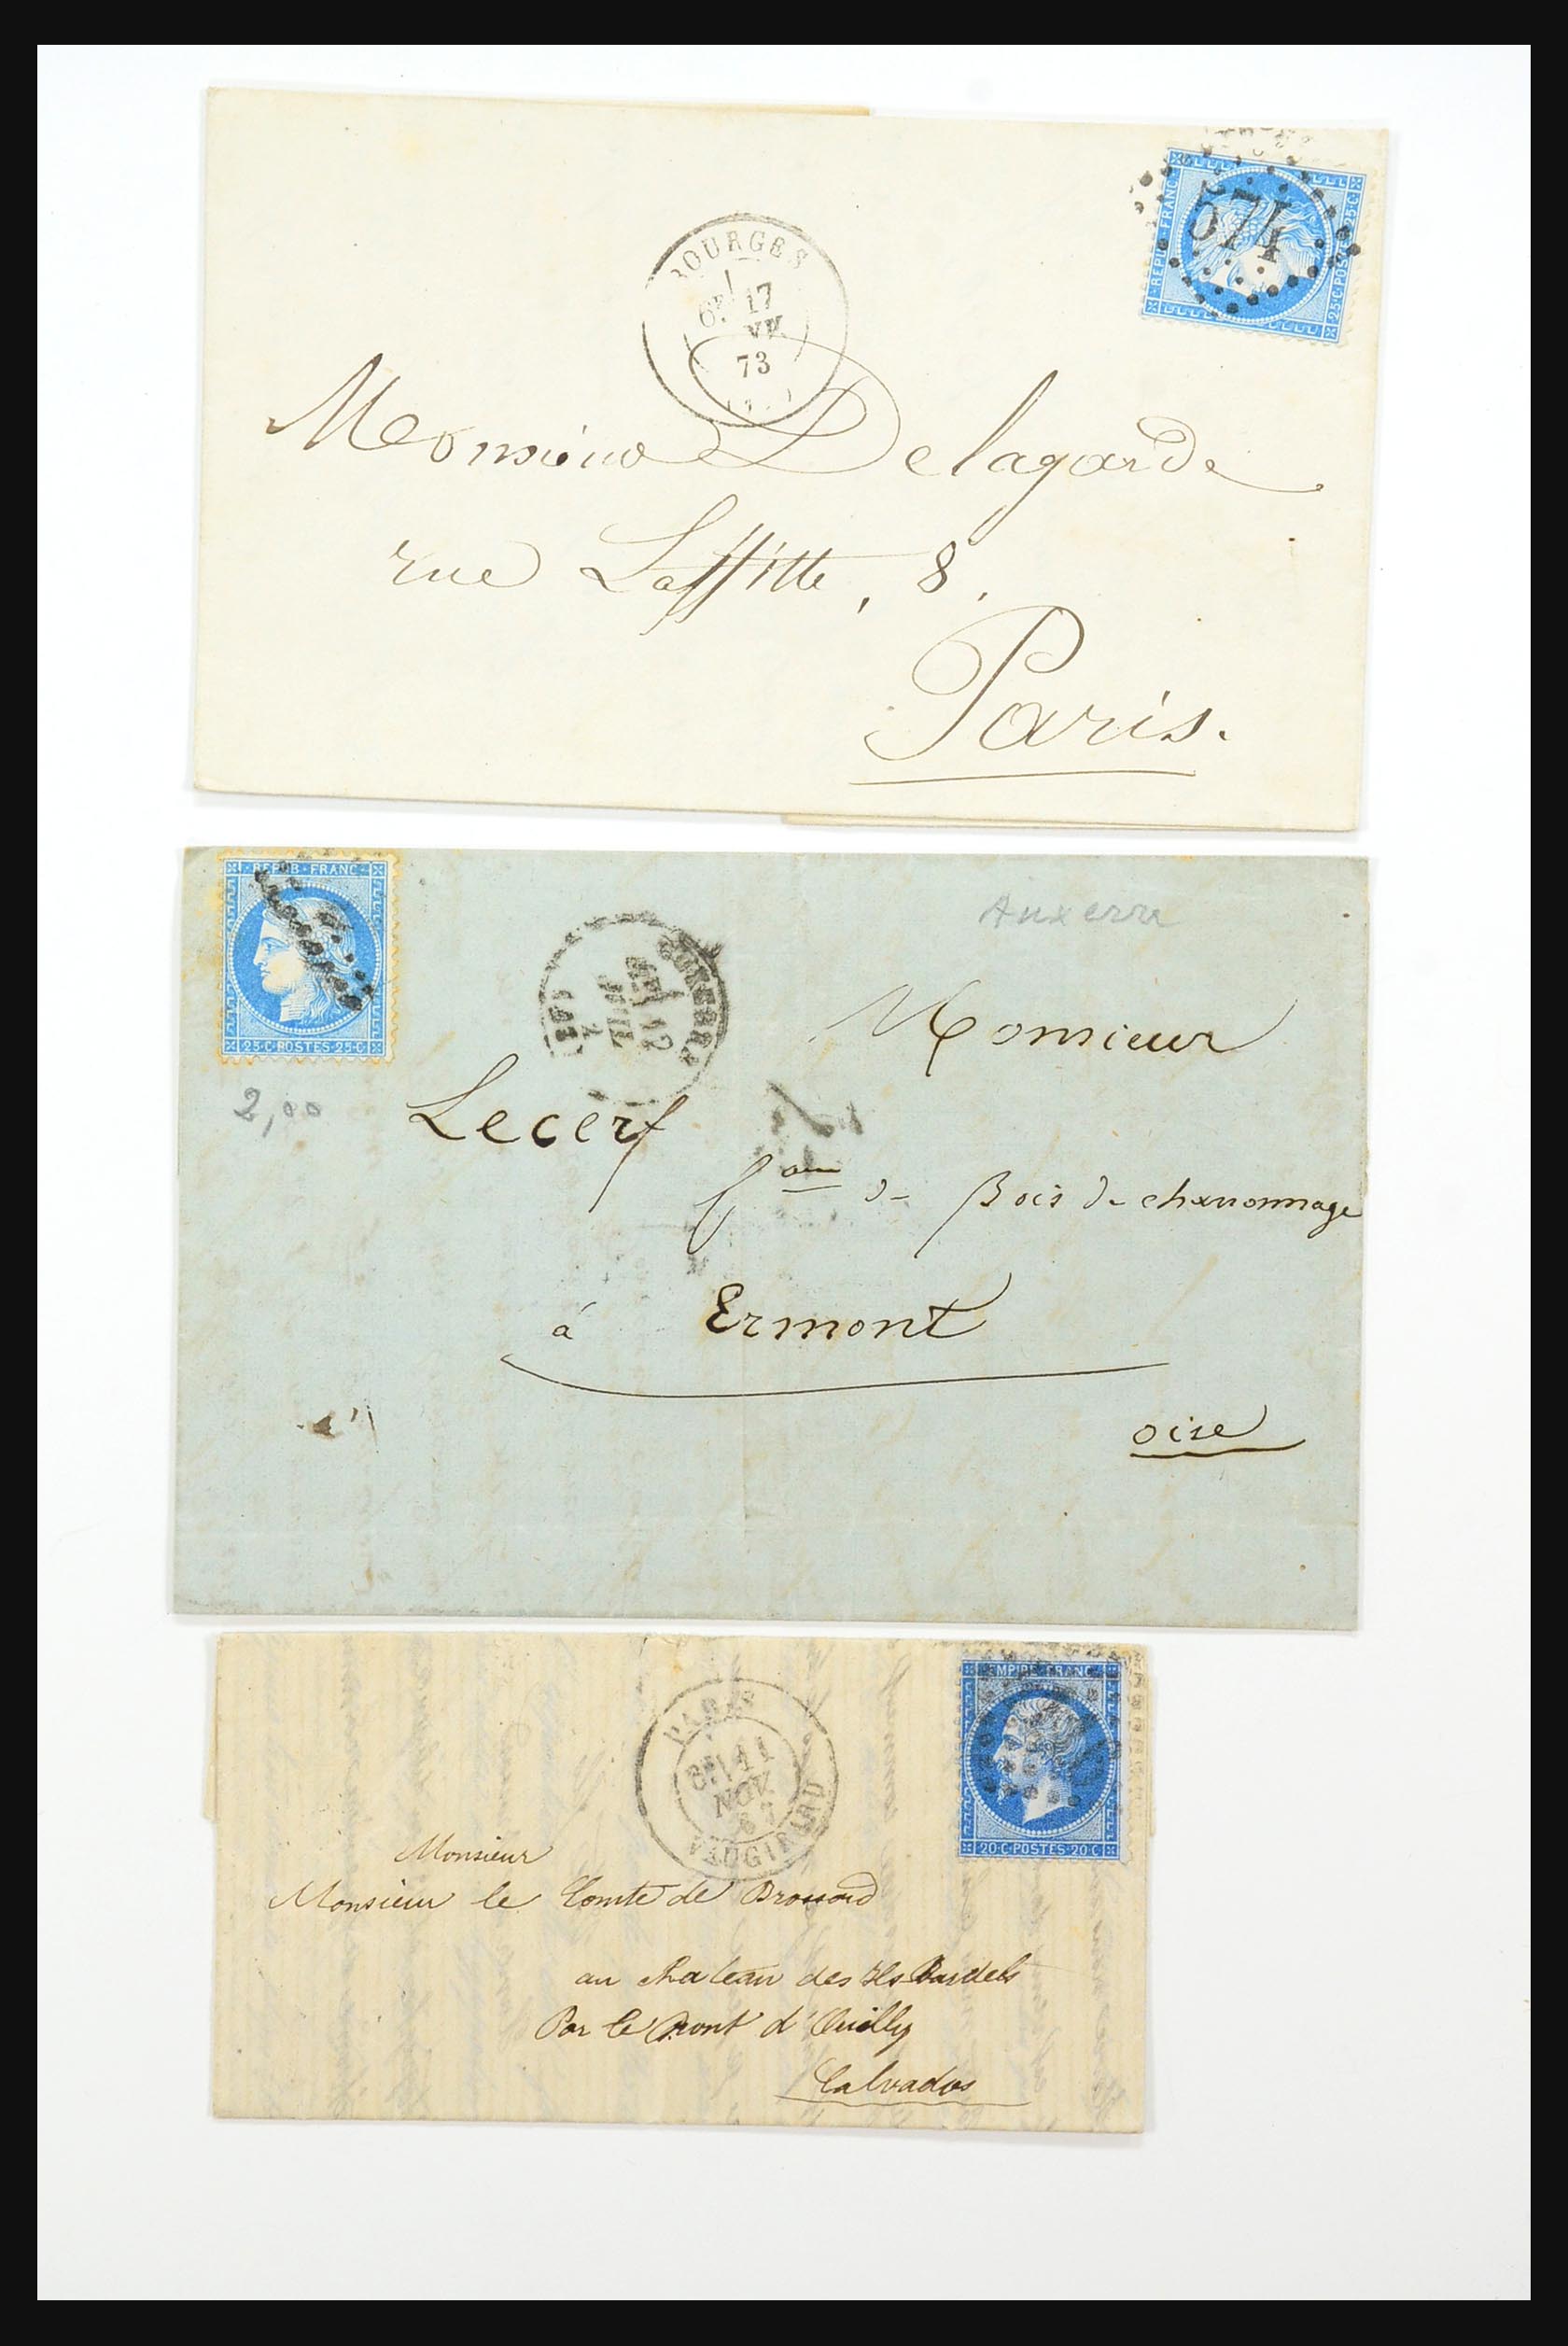 BOURGES
6E 17
73
REPUB·FRANC
25·C·POSTES·25·C
574
Monsieur Delagarde
rue Laffitte, 8,
Paris.
REPUB·FRANC
25·C·POSTES·25·C
2,00
Auxerre
Monsieur
Lecerf
de Bois de charronnage
à Ermont
oise
PARIS
11
NOV.
VAUGIRARD
EMPIRE FRANC
20·C·POSTES·20·C
Monsieur
Monsieur le Comte de Brossard
au chateau des Ils Bardels
Par le Pont d'Ouilly
Calvados